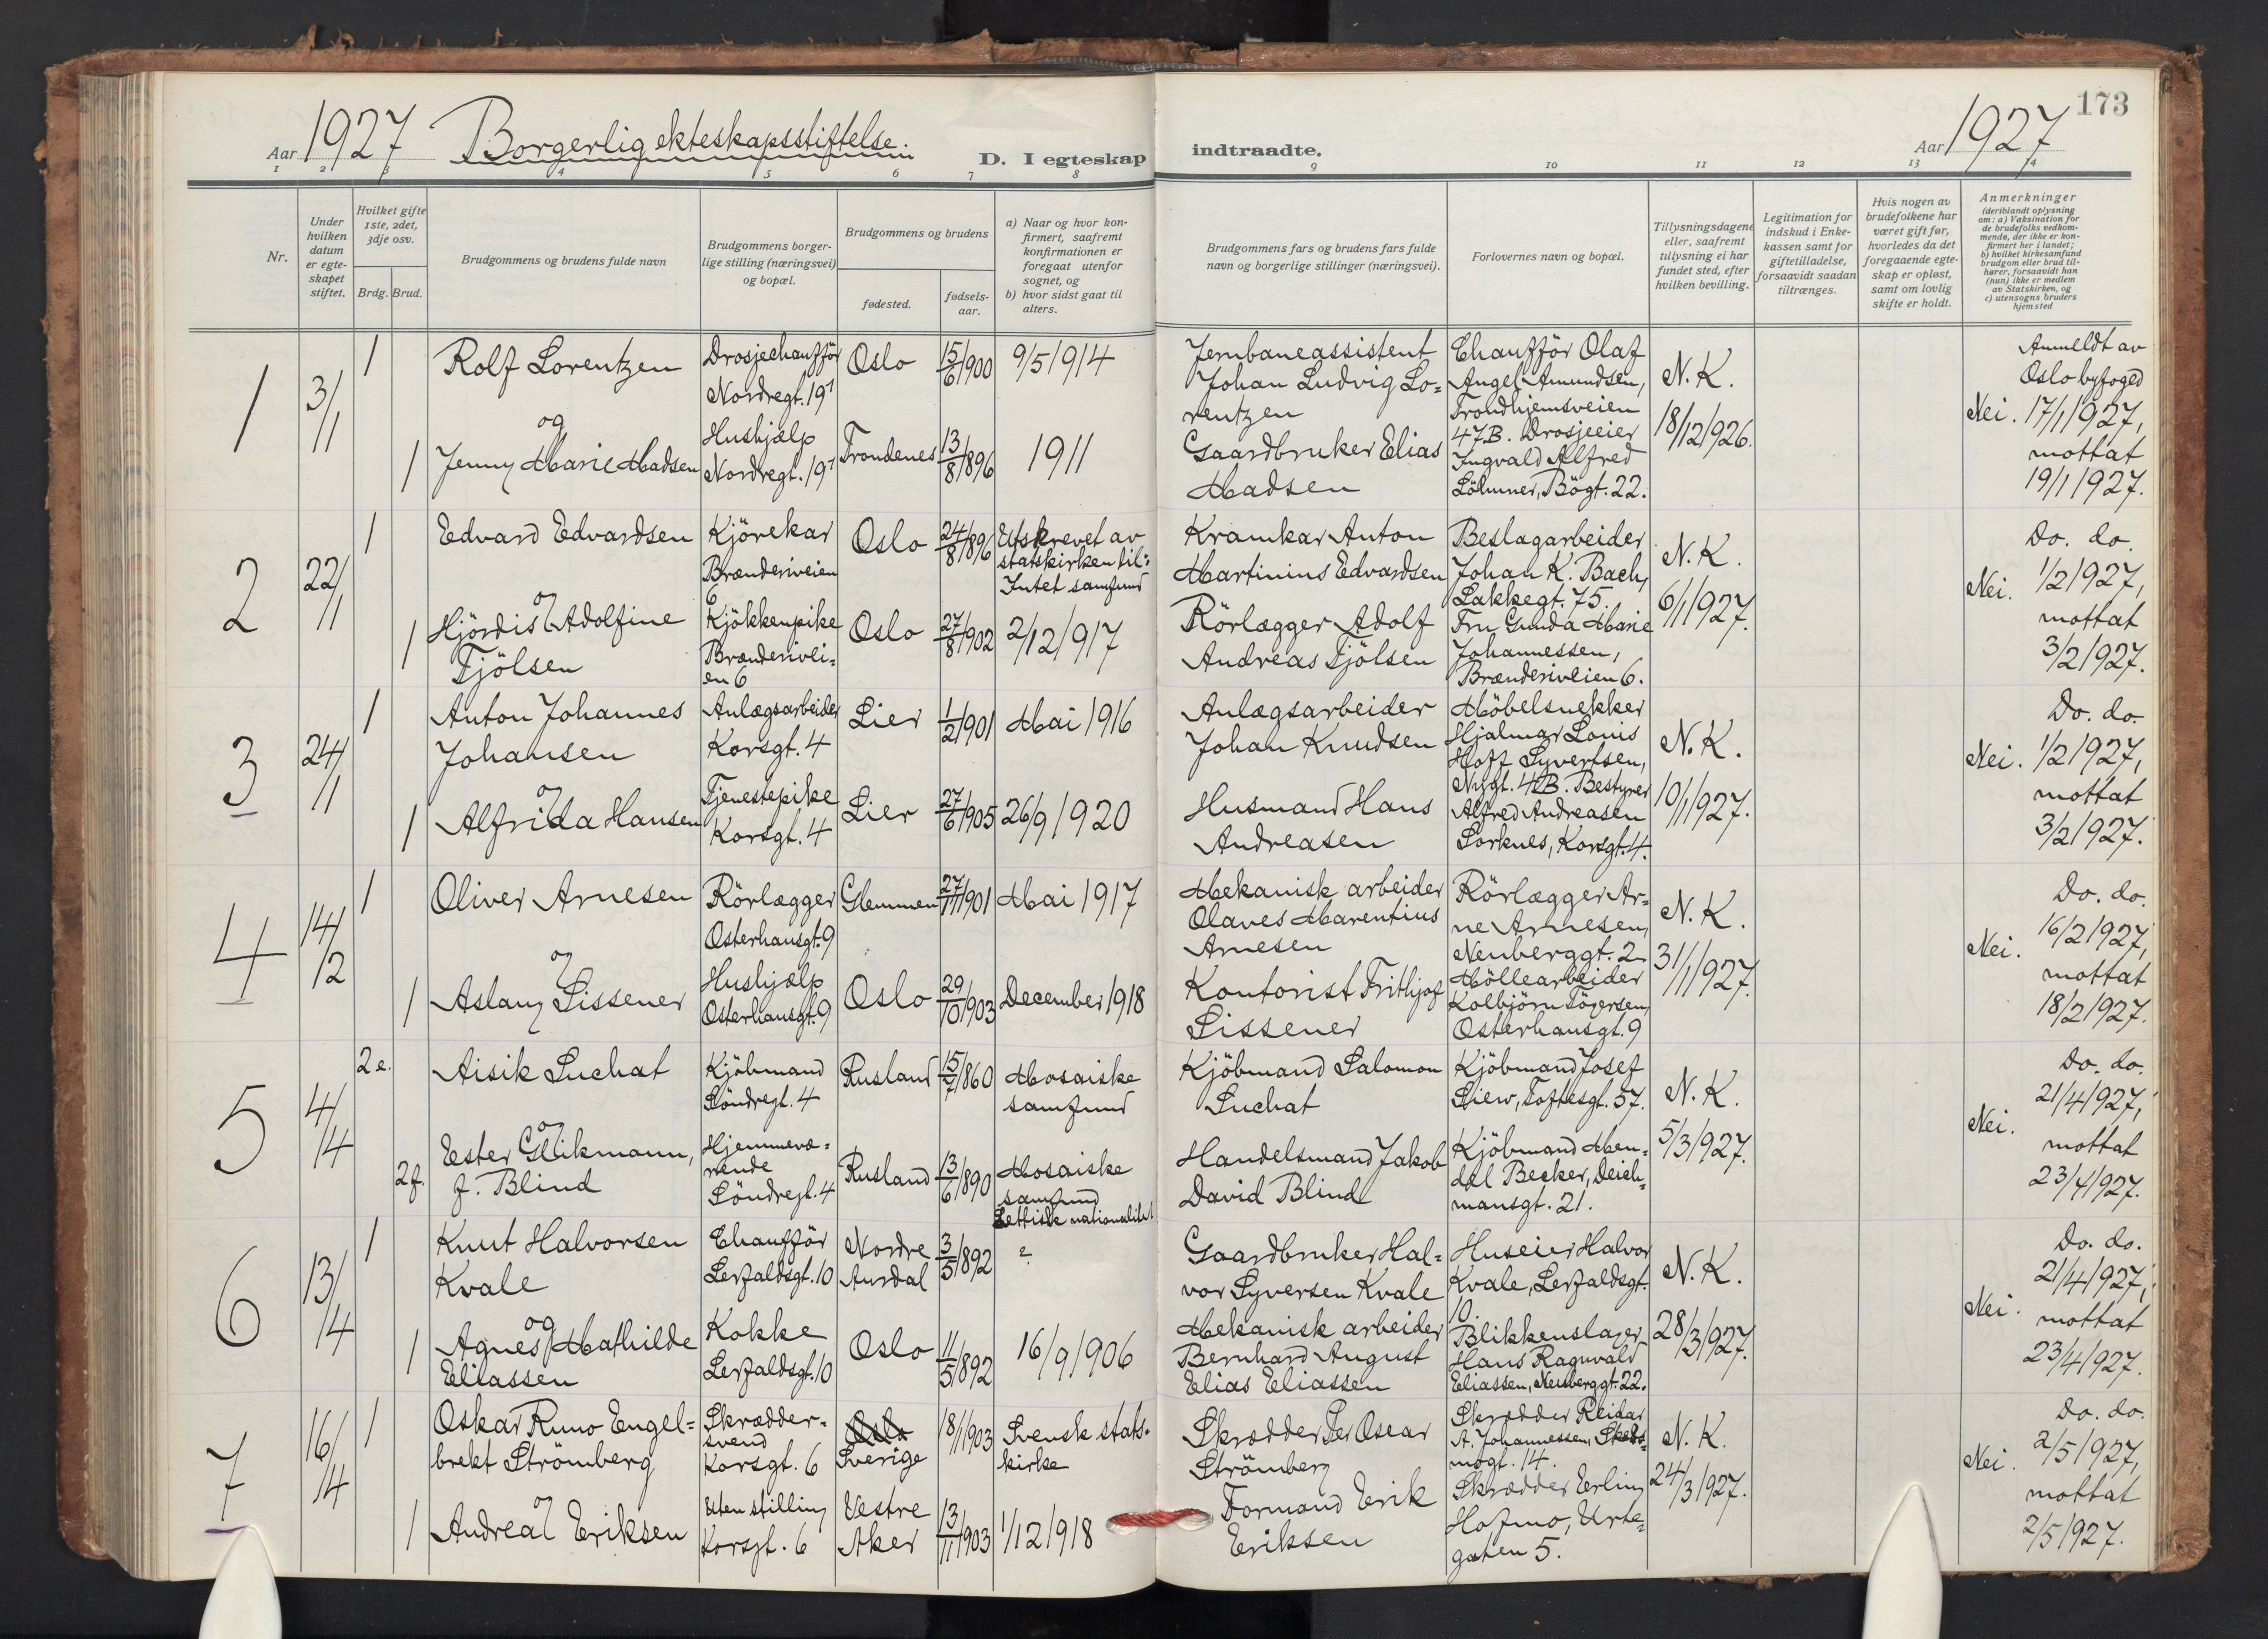 173
Aar 1927 Borgerlig ekteskapsstiftelse. D. I egteskap
indtraadte. Aar 1927
1 2 3 4 5 6 7 8
9 10 11 12 13 14
Nr.
Under hvilken datum er egte-skapet stiftet.
Hvilket gifte 1ste, 2det, 3dje osv.
Brdg. Brud.
Brudgommens og brudens fulde navn
Brudgommens borger-
lige stilling (næringsvei)
og bopæl.
Brudgommens og brudens
fødested.
fødsels-
aar.
a) Naar og hvor kon-
firmert, saafremt
konfirmationen er
foregaat utenfor
sognet, og
b) hvor sidst gaat til
alters.
Brudgommens fars og brudens fars fulde
navn og borgerlige stillinger (næringsvei).
Forlovernes navn og bopæl.
Tillysningsdagene
eller, saafremt
tillysning ei har
fundet sted, efter
hvilken bevilling.
Legitimation for
indskud i Enke-
kassen samt for
giftetilladelse,
forsaavidt saadan
tiltrænges.
Hvis nogen av
brudefolkene har
været gift før,
hvorledes da det
foregaaende egte-
skap er opløst,
samt om lovlig
skifte er holdt.
Anmerkninger
(deriblandt oplysning
om: a) Vaksination for
de brudefolks vedkom-
mende, der ikke er kon-
firmert her i landet;
b) hvilket kirkesamfund
brudgom eller brud til-
hører, forsaavidt han
(hun) ikke er medlem
av Statskirken, og
c) utensogns bruders
hjemsted
1
3/1
1
Rolf Lorentzen
Drosjechauffør
Nordregt. 19
Oslo
15/6 1900
9/5 1914
og
1
Jenny Marie Madsen
Hushjælp
Nordregt. 19
Trondenes
13/8 1896
1911
Jernbaneassistent
Johan Ludvig Lo=
rentzen
Gaardbruker Elias
Madsen
Chauffør Olaf
Angel Amundsen,
Trondhjemsveien
47B. Drosjeeier
Ingvald Alfred
Bögt. 22.
N.K.
18/12 1926.
Nei.
Anmeldt av
Oslo byfoged
17/1 1927,
mottat
19/1 1927.
2
22/1
1
Edvard Edvardsen
Kjörekar
Brænderiveien
6
Oslo
24/8 1896
Utskrevet av
statskirken til:
Intet samfund
og
1
Hjördis Adolfine
Tjölsen
Kjökkenpike
Brænderivei=
en 6
Oslo
27/8 1902
2/12 1917
Kramkar Anton
Martinius Edvardsen
Rörlægger Adolf
Andreas Tjölsen
Beslagarbeider
Johan K. Bach,
Lakkegt. 75.
Fru Gunda Marie
Johannessen,
Brænderiveien 6.
N.K.
6/1 1927.
Nei.
Do. do.
1/2 1927,
mottat
3/2 1927.
3
24/1
1
Anton Johannes
Johansen
Anlægsarbeider
Korsgt. 4
Lier
1/2 1901
Mai 1916
og
1
Alfrida Hansen
Tjenestepike
Korsgt. 4
Lier
27/6 1905
26/9 1920
Anlægsarbeider
Johan Knudsen
Husmand Hans
Andreasen
Möbelsnekker
Hjalmar Louis
Hoff Syvertsen,
Nygt. 42B. Bestyrer
Alfred Andreasen
Sorknes, Korsgt. 4.
N.K.
10/1 1927.
Nei.
Do. do.
1/2 1927,
mottat
3/2 1927.
4
14/2
1
Oliver Arnesen
Rörlægger
Osterhausgt. 9
Glemmen
27/11 1901
Mai 1917
og
1
Aslaug Sissener
Hushjælp
Osterhausgt. 9
Oslo
29/10 1903
December 1918
Mekanisk arbeider
Olaves Marentius
Arnesen
Kontorist Frithjof
Sissener
Rörlægger Ar=
ne Arnesen,
Neuberggt. 2
Möllearbeider
Kolbjörn
Osterhausgt. 9
N.K.
31/1 1927.
Nei.
Do. do.
16/2 1927,
mottat
18/2 1927.
5
4/4
2 e.
Aisik Suchat
Kjöbmand
Söndregt. 4
Rusland
15/7 1860
Mosaiske
samfund
og
2 f.
Ester Glikmann,
f. Blind
Hjemmevæ=
rende
Söndregt. 4
Rusland
13/6 1890
Mosaiske
samfund
Lettisk nationalitet
Kjöbmand Salomon
Suchat
Handelsmand Jakob
David Blind
Kjöbmand Josef
Siew, Toftesgt. 57.
Kjöbmand Men=
del Becker, Deich=
mansgt. 21.
N.K.
5/3 1927.
Nei.
Do. do.
21/4 1927,
mottat
23/4 1927.
6
13/4
1
Knut Halvorsen
Kvale
Chauffør
Lerfaldsgt. 10
Nordre
Aurdal
3/5 1892
?
og
1
Agnes Mathilde
Eliassen
Kokke
Lerfaldsgt. 10
Oslo
11/5 1892
16/9 1906
Gaardbruker Hal=
vor Syversen Kvale
Mekanisk arbeider
Bernhard August
Elias Eliassen
Huseier Halvor
Kvale, Lerfaldsgt.
10.
Blikkenslager
Hans Ragnvald
Eliassen, Neuberggt. 22.
N.K.
28/3 1927.
Nei.
Do. do.
21/4 1927,
mottat
23/4 1927.
7
16/4
1
Oskar Runo Engel=
brekt Strömberg
Skrædder=
svend
Korsgt. 6
Oslo
Sverige
18/1 1903
Svensk stats=
kirke
og
1
Andrea Eriksen
Uten stilling
Korsgt. 6
Vestre
Aker
13/11 1903
1/12 1918
Skrædder Per Oscar
Strömberg
Formand Erik
Eriksen
Skrædder Reidar
A. Johannessen,
mogt. 14.
Skrædder Erling
Hofmo, Urte=
gaten 5.
N.K.
24/3 1927.
Nei.
Do. do.
2/5 1927,
mottat
2/5 1927.